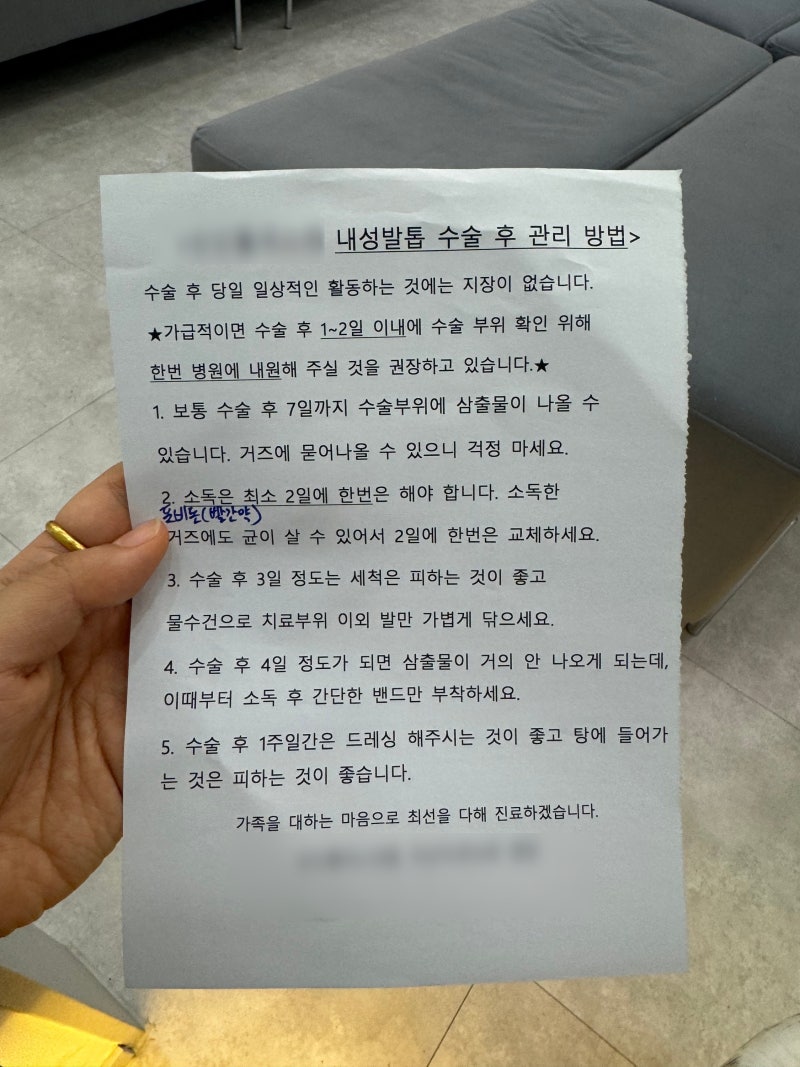 내성발톱 수술 후 관리 방법>
수술 후 당일 일상적인 활동하는 것에는 지장이 없습니다.
★가급적이면 수술 후 1~2일 이내에 수술 부위 확인 위해
한번 병원에 내원해 주실 것을 권장하고 있습니다.★
1. 보통 수술 후 7일까지 수술부위에 삼출물이 나올 수
있습니다. 거즈에 묻어나올 수 있으니 걱정 마세요.
2. 소독은 최소 2일에 한번은 해야 합니다. 소독한
포비돈(빨간약)
거즈에도 균이 살 수 있어서 2일에 한번은 교체하세요.
3. 수술 후 3일 정도는 세척은 피하는 것이 좋고
물수건으로 치료부위 이외 발만 가볍게 닦으세요.
4. 수술 후 4일 정도가 되면 삼출물이 거의 안 나오게 되는데,
이때부터 소독 후 간단한 밴드만 부착하세요.
5. 수술 후 1주일간은 드레싱 해주시는 것이 좋고 탕에 들어가
는 것은 피하는 것이 좋습니다.
가족을 대하는 마음으로 최선을 다해 진료하겠습니다.